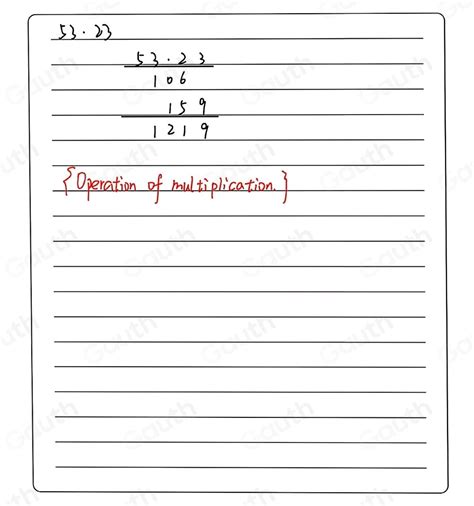 53.23
53.23
106
159
1219
{Operation of multiplication.}